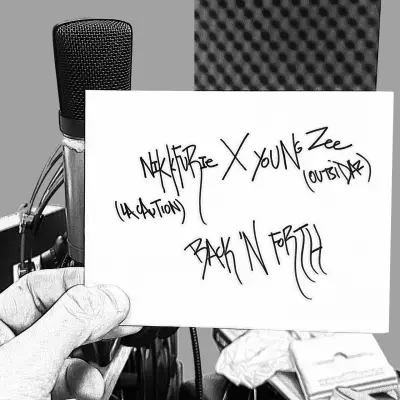 NIKKFURIE X YOUNG ZEE
(LA CAUTION) (OUTSIDAZ)
BACK 'N FORTH